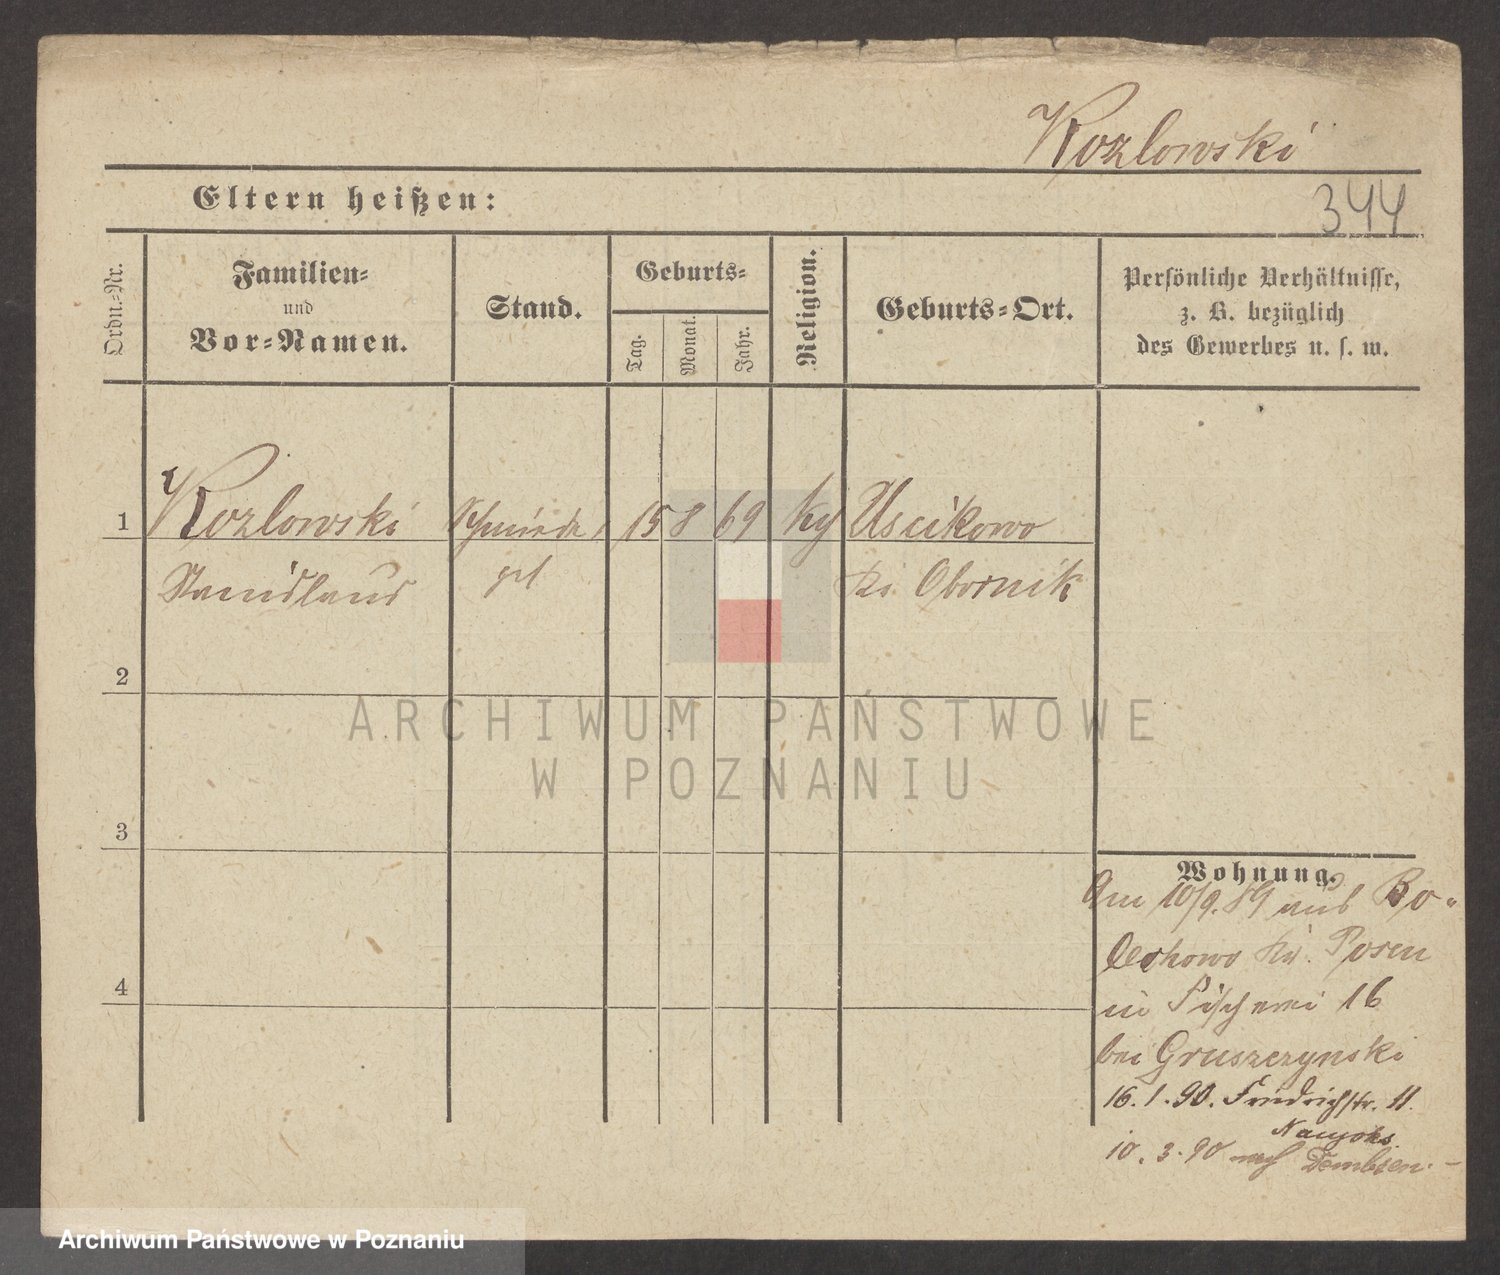 Kozlowski
Eltern heißen:
344
Ordn.-Nr.
Familien-
und
Vor-Namen.
Stand.
Geburts-
Tag.
Monat.
Jahr.
Religion.
Geburts-Ort.
Persönliche Verhältnisse,
z. B. bezüglich
des Gewerbes u. s. w.
1 Kozlowski Schmiede 15 8 69 Uscikowo
Stanislaus gel Obornik
2
ARCHIWUM PAŃSTWOWE
W POZNANIU
3
4
Wohnung.
Am 10/9. 89 aus Bo-
lechowo Posen
in Fischerei 16
bei Gruszczynski
16. 1. 90. Friedrichstr. 11.
10. 3. 90 nach Dembsen.
Archiwum Państwowe w Poznaniu